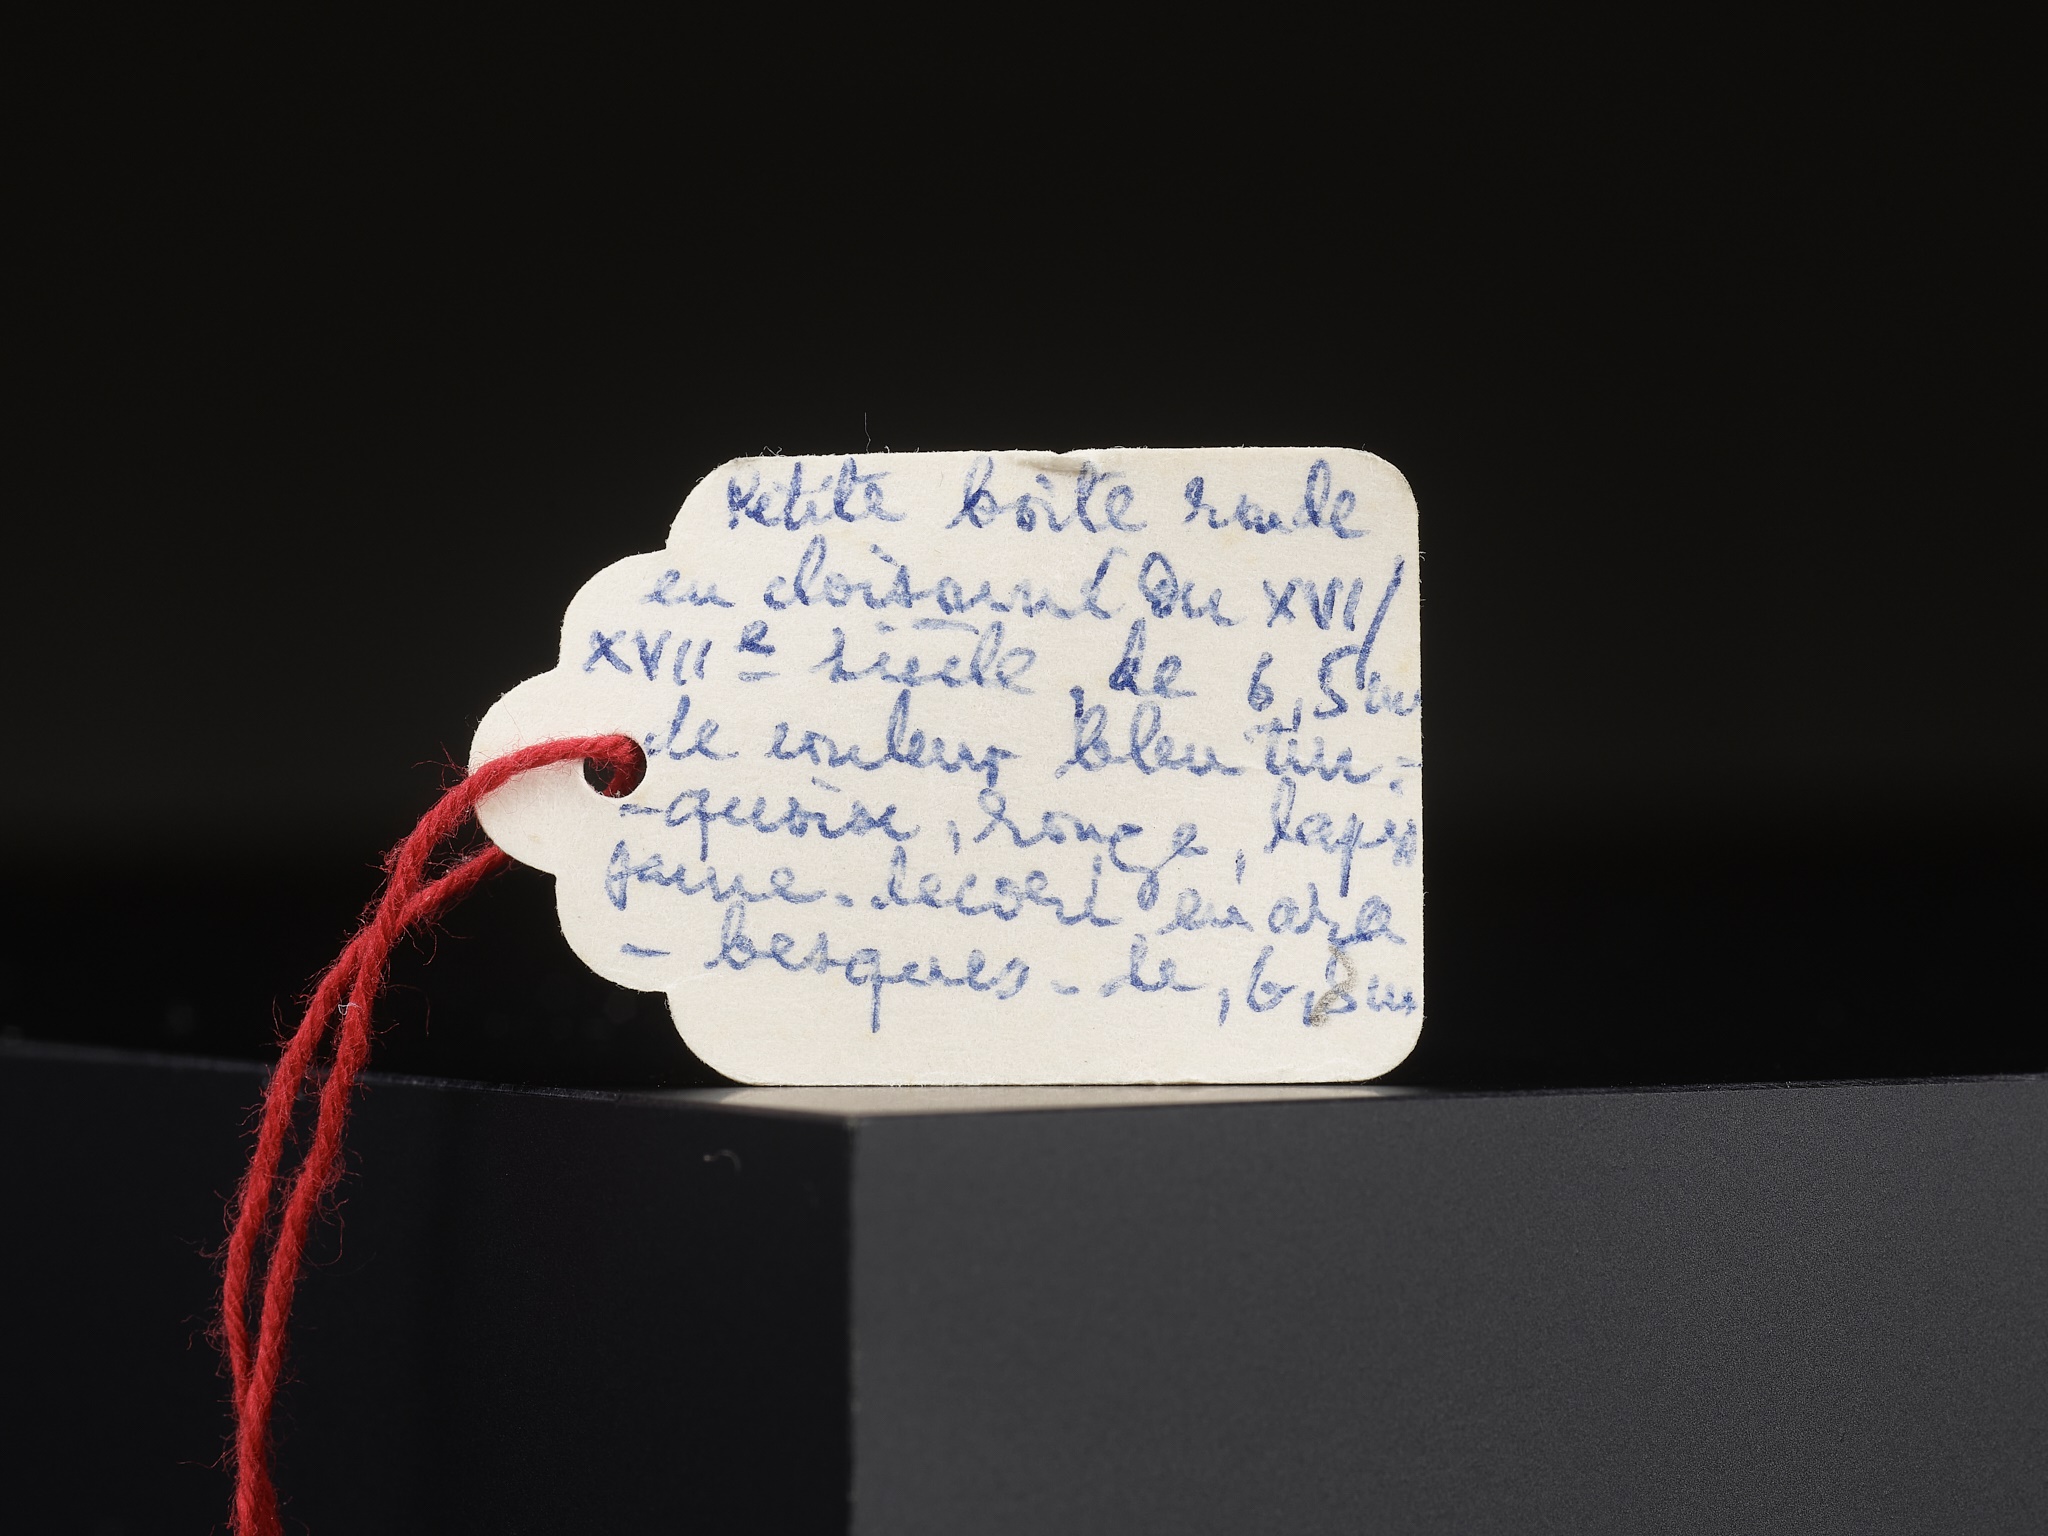 Petite boîte ronde
en cloisonné du XVI/
XVIIe siècle, de 6,5cm
de couleur bleu tur-
-quoise, rouge, lapis
jaune - décort en ara
- besques - de, 6,5cm